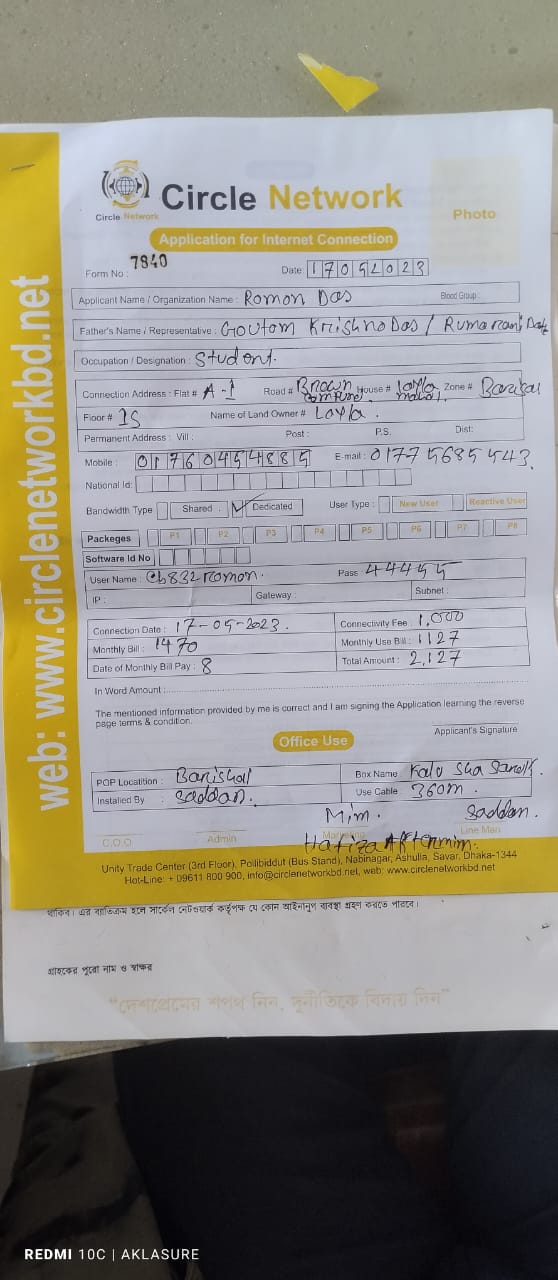 web: www.circlenetworkbd.net
Circle Network
Circle Network
Photo
Application for Internet Connection
Form No : 7840
Date: 17052023
Applicant Name / Organization Name : Romon Das
Blood Group :
Father's Name / Representative : Goutom Krishno Das / Ruma rani
Occupation / Designation : Student.
Connection Address : Flat # A-1 Road # Brown Compund, House # Layla Zone # Barisal
Floor # Name of Land Owner # Layla .
Permanent Address : Vill : Post : P.S. Dist:
Mobile : 01760454885 E-mail : 01775685543.
National Id:
Bandwidth Type Shared Dedicated User Type : New User Reactive User
Packeges P1 P2 P3 P4 P5 P6 P7 P8
Software Id No
User Name : Cb832romon. Pass : 44455
IP : Gateway : Subnet :
Connection Date : 17-05-2023. Connectivity Fee : 1,000
Monthly Bill : 1470 Monthly Use Bill : 1127
Date of Monthly Bill Pay : 8 Total Amount : 2,127
In Word Amount :
The mentioned information provided by me is correct and I am signing the Application learning the reverse
page terms & condition.
Applicant's Signature
Office Use
POP Locatition : Barishal Box Name : Kalu Sha
Installed By : Saddan. Use Cable 360m.
Mim. Saddan.
C.O.O Admin Line Man
Hafiza
Unity Trade Center (3rd Floor), Pollibiddut (Bus Stand), Nabinagar, Ashulia, Savar, Dhaka-1344
Hot-Line: + 09611 800 900, info@circlenetworkbd.net, web: www.circlenetworkbd.net
থাকিব। এর ব্যতিক্রম হলে সার্কেল নেটওয়ার্ক কর্তৃপক্ষ যে কোন আইনানুগ ব্যবস্থা গ্রহণ করতে পারবে।
গ্রাহকের পুরো নাম ও স্বাক্ষর
"দেশপ্রেমের শপথ নিন, দুর্নীতিকে বিদায় দিন"
REDMI 10C | AKLASURE